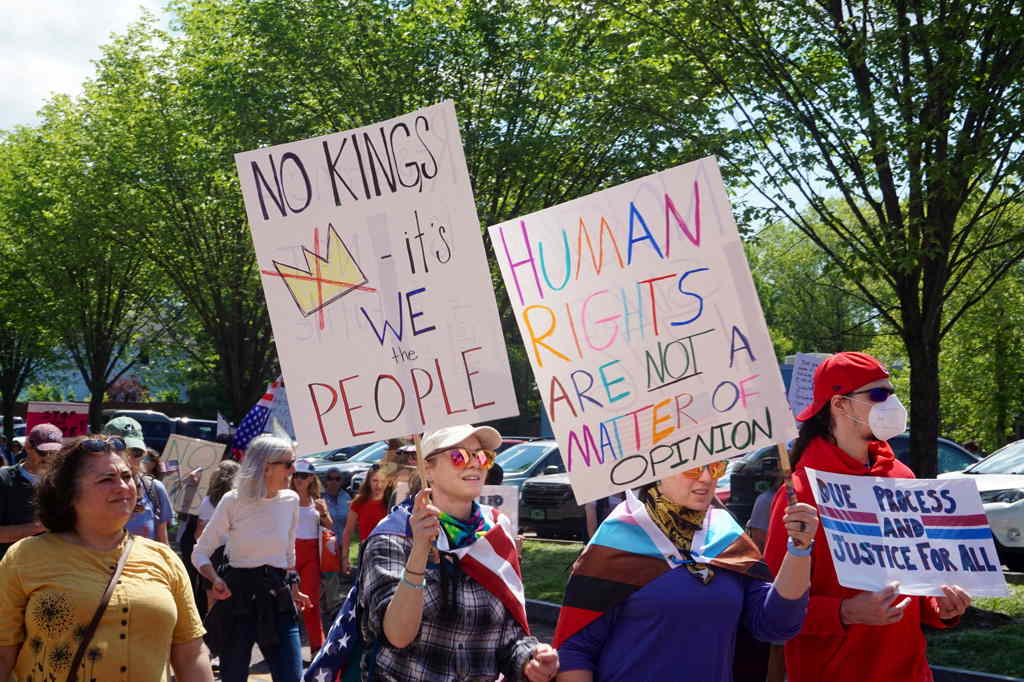 NO KINGS,
- it's
WE
the
PEOPLE
HUMAN
RIGHTS
ARE NOT A
MATTER OF
OPINION
DUE PROCESS
AND
JUSTICE FOR ALL
STOP
NO